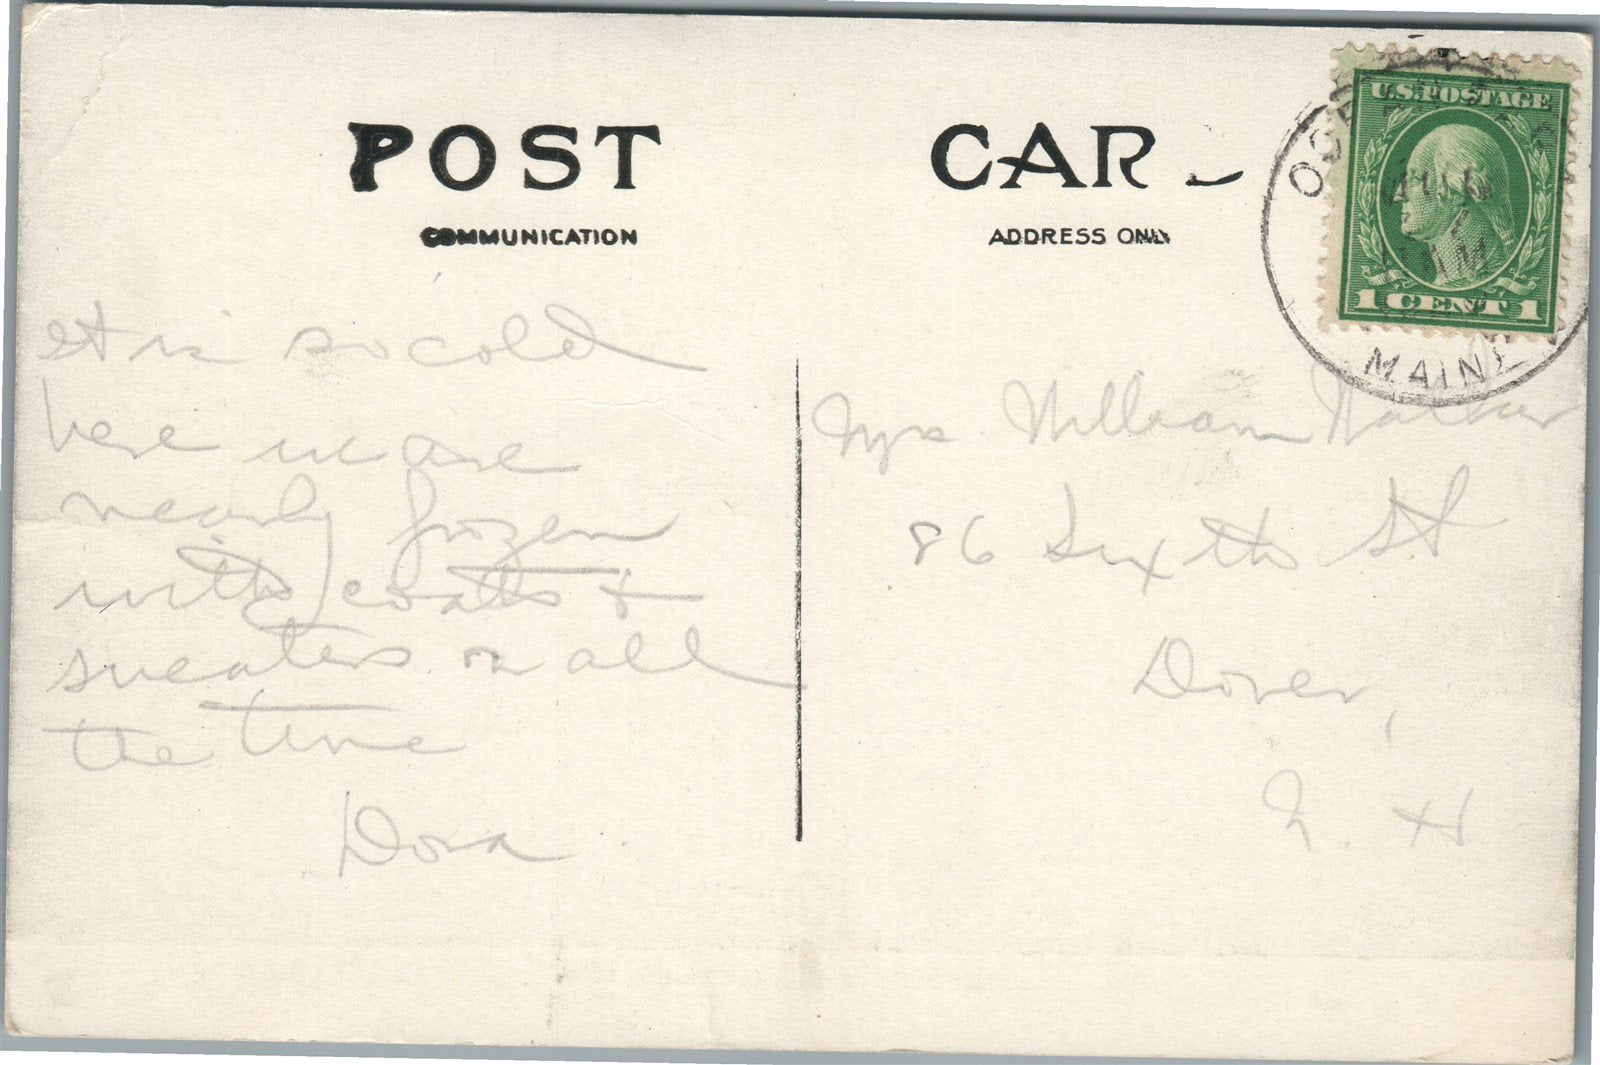 POST CAR
COMMUNICATION
ADDRESS ONLY
U.S. POSTAGE
AUG
7
AM
1 CENT 1
MAINE
It is so cold
here we are
nearly frozen
with coats +
sweaters on all
the time
Dora
Mrs. William
86 Sixth St
Dover,
N. H